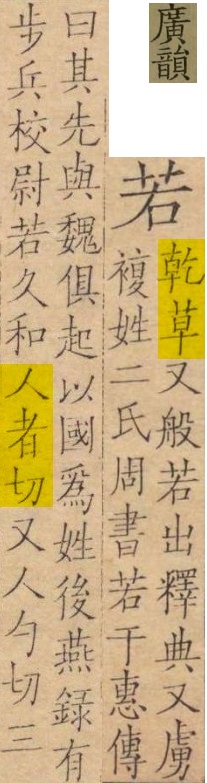 廣韻
若
乾草又般若出釋典又虜
複姓二氏周書若干惠傳
曰其先與魏俱起以國爲姓後燕録有
步兵校尉若久和人者切又人勺切三